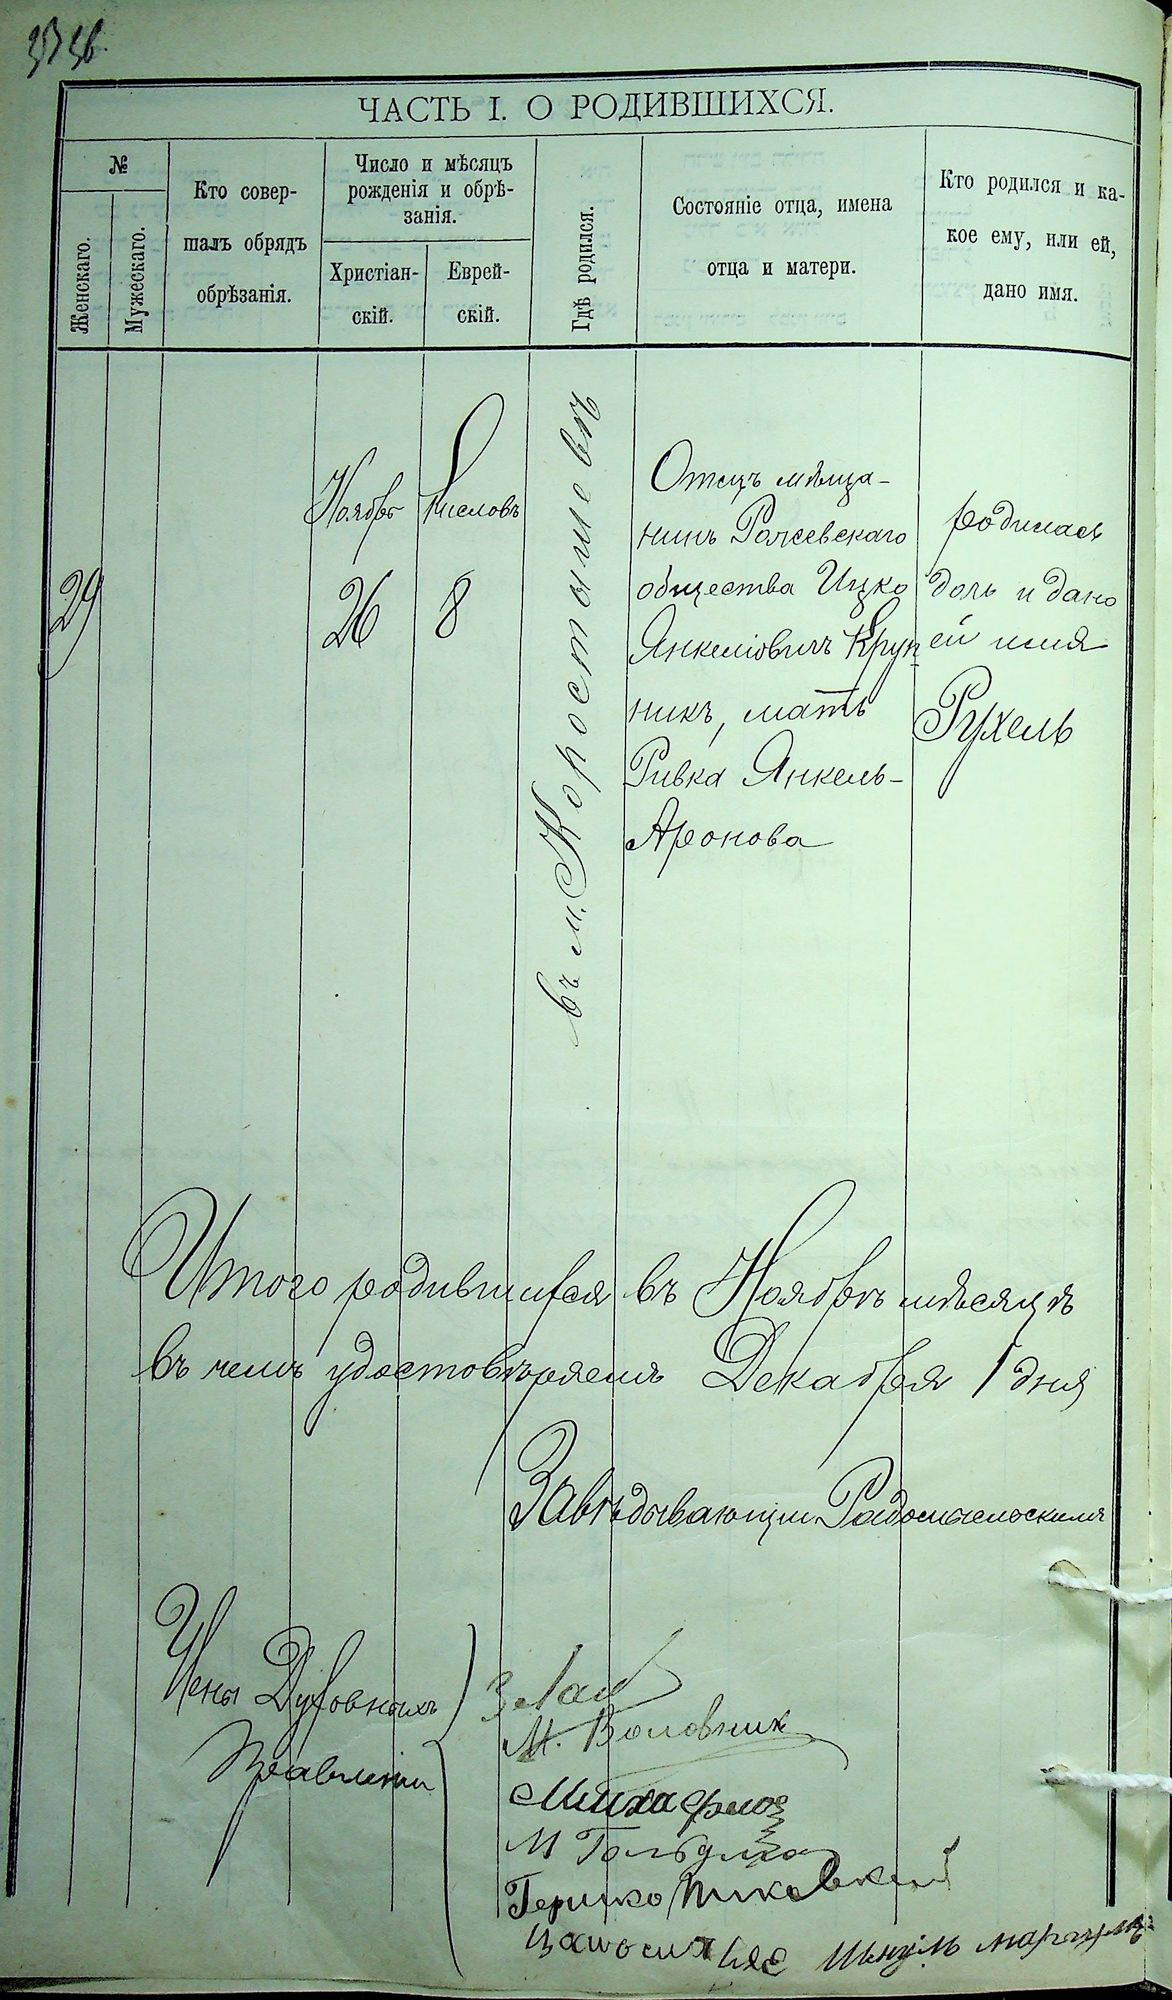 ЧАСТЬ I. О РОДИВШИХСЯ.
№
Женскаго.
Мужескаго.
Кто совер-
шалъ обрядъ
обрѣзанія.
Число и мѣсяцъ
рожденія и обрѣ-
занія.
Христіан-
скій.
Еврей-
скій.
Гдѣ родился.
Состояніе отца, имена
отца и матери.
Кто родился и ка-
кое ему, или ей,
дано имя.
29
Ноябрь
26
Кисловъ
8
въ м. Коростышевѣ
Отецъ мѣща-
нинъ Рожевскаго
общества Ицко
Янкеліовичъ Круп
никъ, мать
Ривка Янкель-
Аронова
родилась
дочь и дано
ей имя
Рухель
Итого родившихся въ Ноябрѣ мѣсяцѣ
въ чемъ удостовѣряемъ Декабря 1 дня
Завѣдывающій Радомысльскимъ
Члены Духовныхъ
Правленій
М. Воловник
Гершко